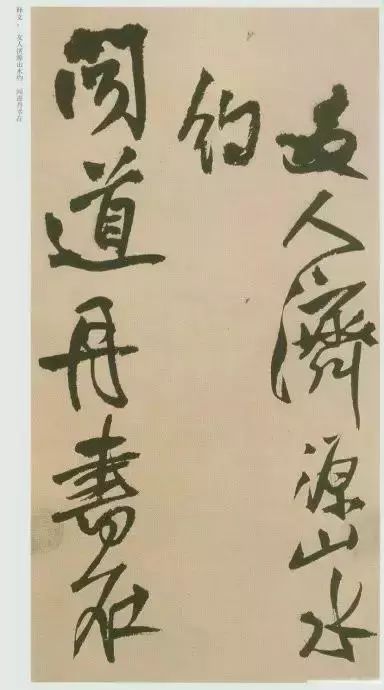 友人濟源山水
約
聞道丹書在
释文：友人济源山水约 闻道丹书在